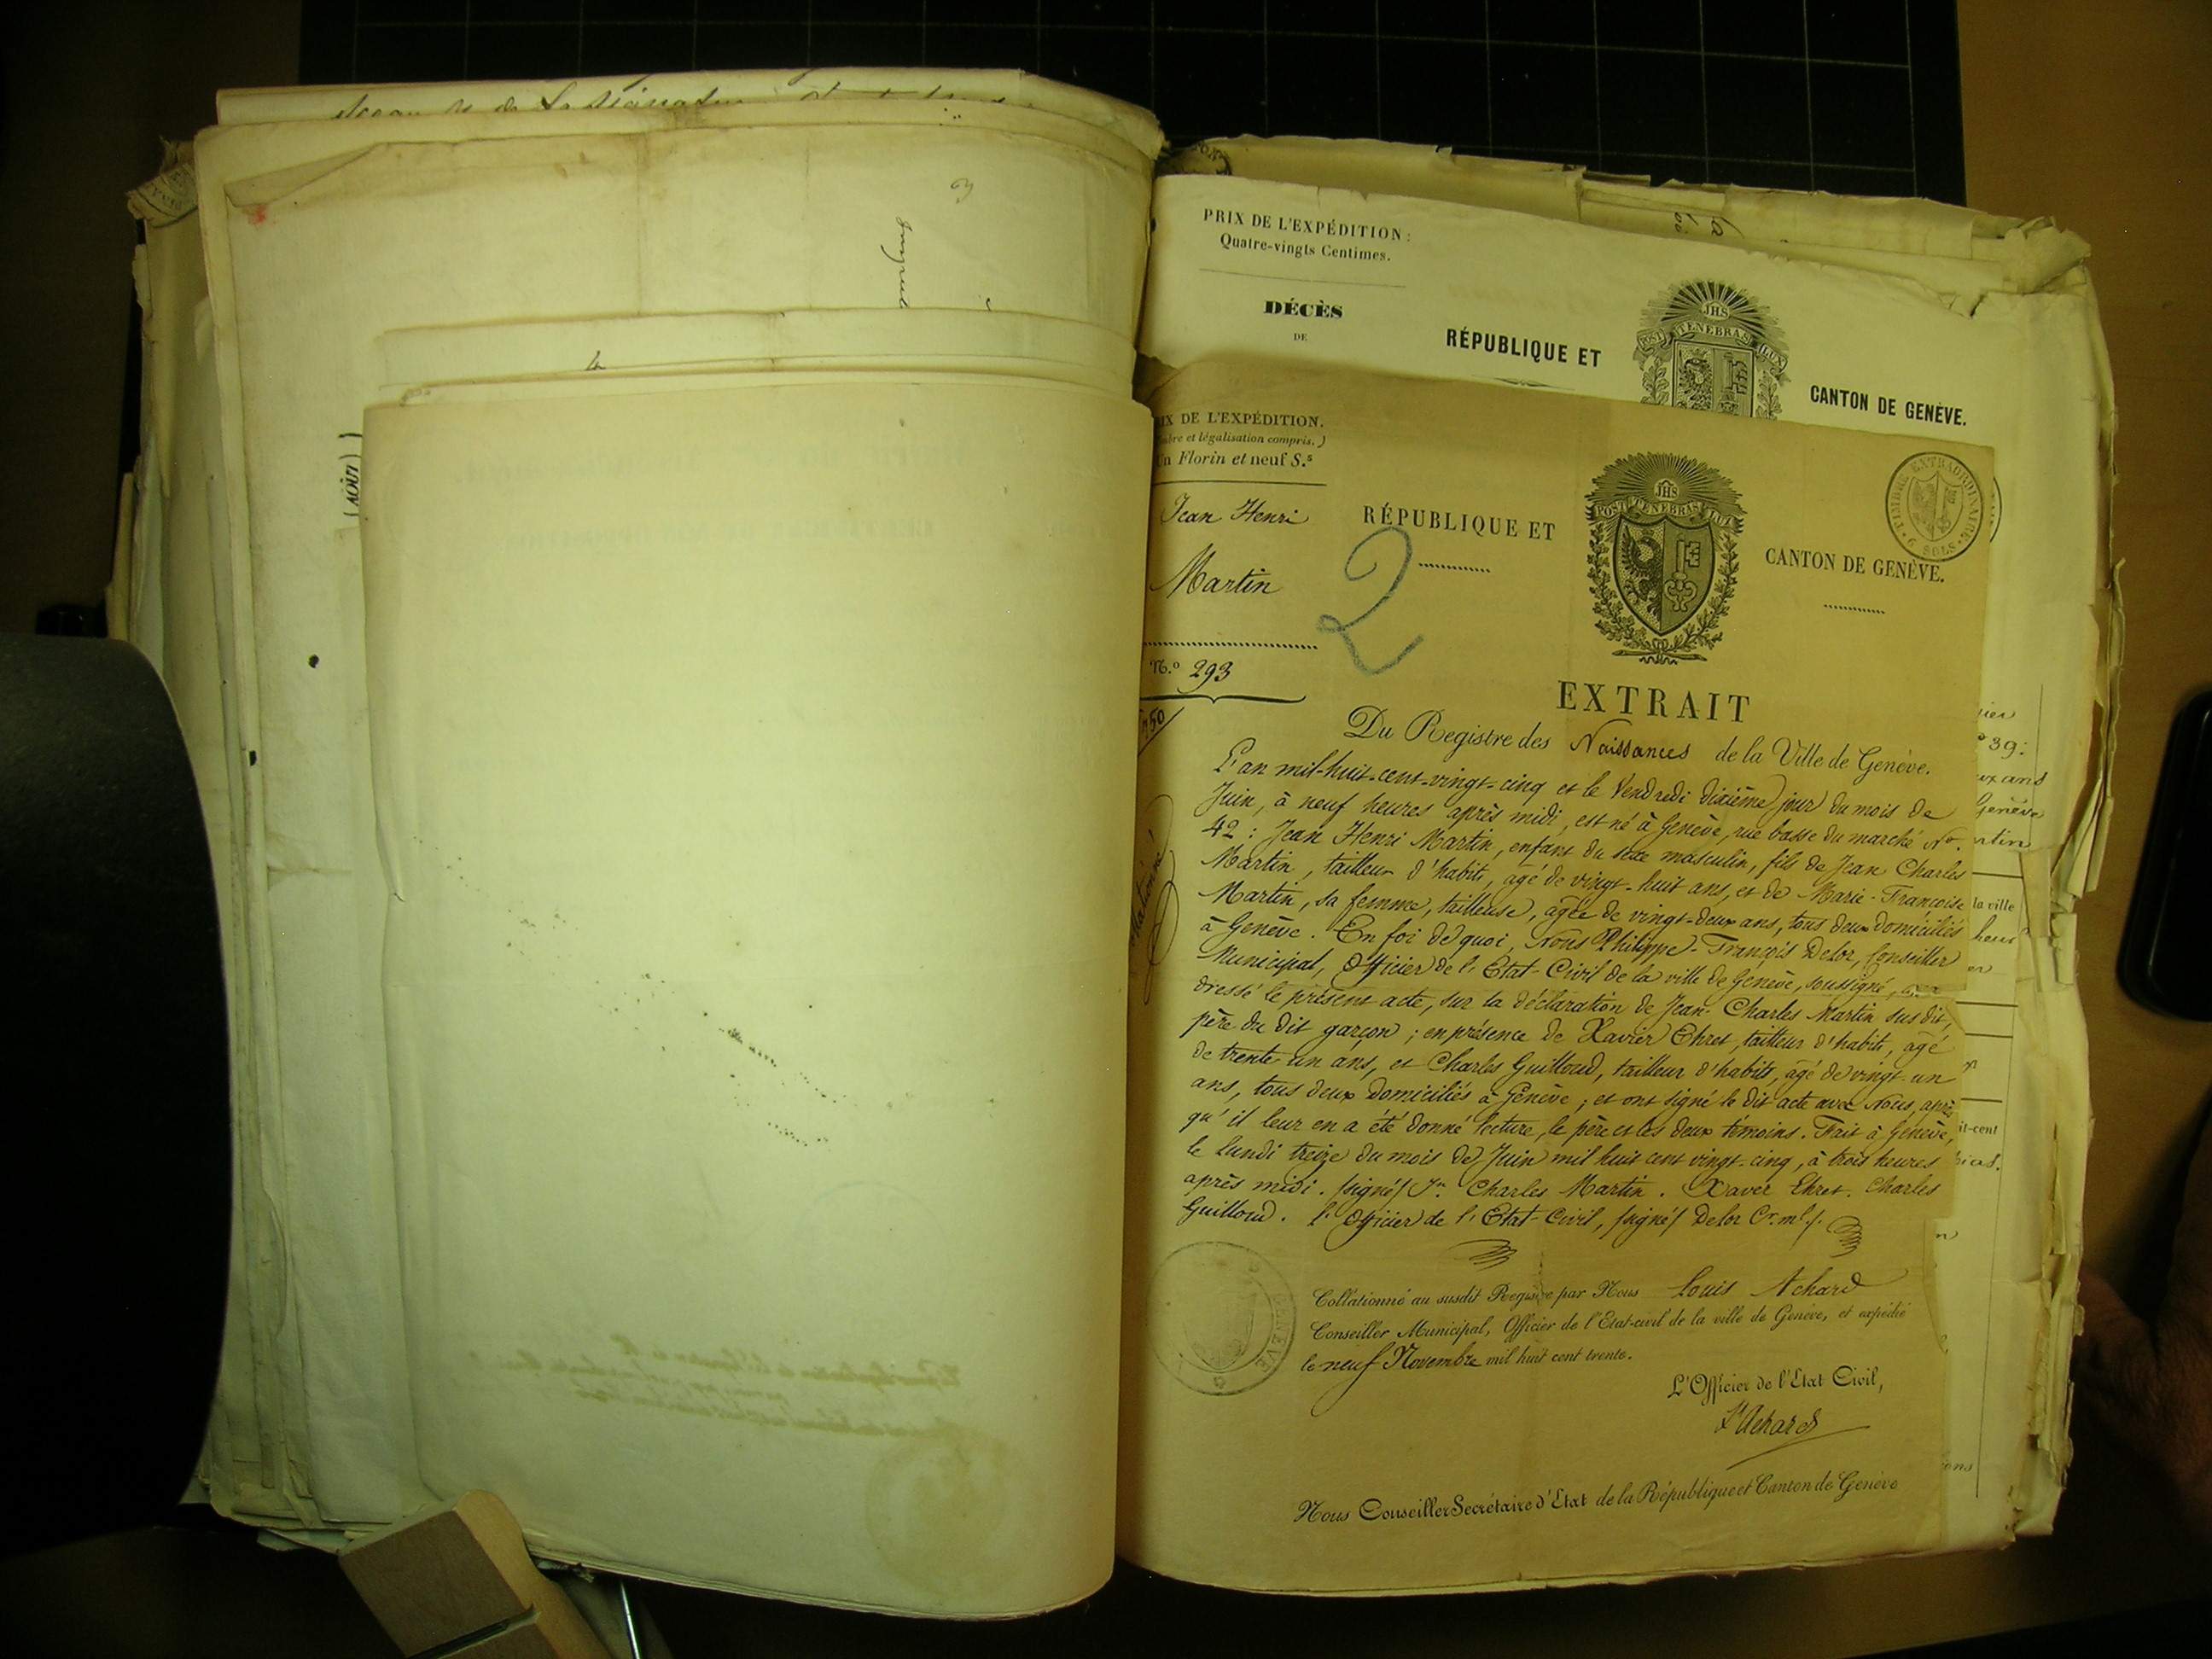 (AOÛT)
4
PRIX DE L'EXPÉDITION :
Quatre-vingts Centimes.
DÉCÈS
DE
RÉPUBLIQUE ET
JHS
POST TENEBRAS LUX
CANTON DE GENÈVE.
IX DE L'EXPÉDITION.
bre et légalisation compris.)
n Florin et neuf S.s
Jean Henri
Martin
N.º 293
RÉPUBLIQUE ET
2
JHS
POST TENEBRAS LUX
CANTON DE GENÈVE.
TIMBRE EXTRAORDINAIRE
6 SOLS
EXTRAIT
Du Registre des Naissances de la Ville de Genève.
L'an mil-huit-cent-vingt-cinq et le Vendredi dixième jour du mois de
Juin, à neuf heures après midi, est né à Genève, rue basse du marché No.
42 : Jean Henri Martin, enfant du sexe masculin, fils de Jean Charles
Martin, tailleur d'habits, agé de vingt-huit ans, et de Marie-Françoise
Martin, sa femme, tailleuse, agée de vingt-deux ans, tous deux domiciliés
à Genève. En foi de quoi, Nous Philippe-François Delor, Conseiller
Municipal, Officier de l'Etat-Civil de la ville de Genève, soussigné,
dressé le présent acte, sur la déclaration de Jean-Charles Martin sus dit,
père du dit garçon ; en présence de Xavier Ehret, tailleur d'habits, agé
de trente-un ans, et Charles Guilloud, tailleur d'habits, agé de vingt-un
ans, tous deux domiciliés à Genève ; et ont signé le dit acte avec Nous, après
qu'il leur en a été donné lecture, le père et les deux témoins. Fait à Genève,
le Lundi treize du mois de Juin mil huit cent vingt-cinq, à trois heures
après midi. /signé/ Jn. Charles Martin. Xaver Ehret. Charles
Guilloud. L'Officier de l'Etat-Civil, /signé/ Delor Cr. ml./.
Collationné au susdit Registre par Nous Louis Achard
Conseiller Municipal, Officier de l'Etat-civil de la ville de Genève, et expédié
le neuf Novembre mil huit cent trente.
L'Officier de l'Etat Civil,
Ls Achard
Nous Conseiller Secrétaire d'Etat de la République et Canton de Genève
39:
ux ans
Genève
rtin
la ville
it-cent